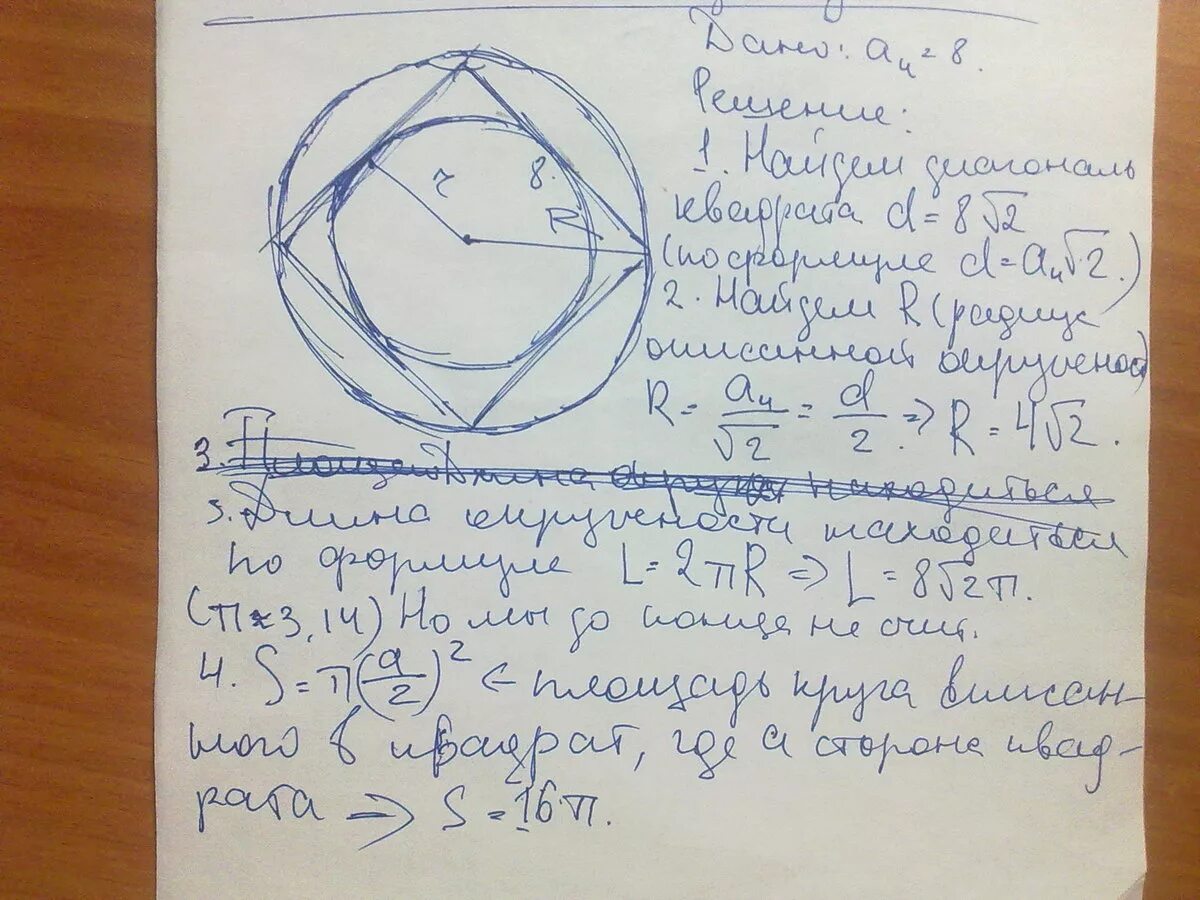 Дано: a₄ = 8.
Решение:
1. Найдем диагональ
квадрата d = 8√2
(по формуле d = a₄√2.)
2. Найдем R (радиус
описанной окружност)
R = a₄/√2 = d/2. => R = 4√2.
r
8.
R
3. Площадь Длина окружн находиться
3. Длина окружености находиться
по формуле L = 2πR => L = 8√2π.
(π ≈ 3,14) Но мы до конца не счит.
4. S = π(a/2)² ← площадь круга вписан-
ного в квадрат, где a сторона квад-
рата => S = 16π.